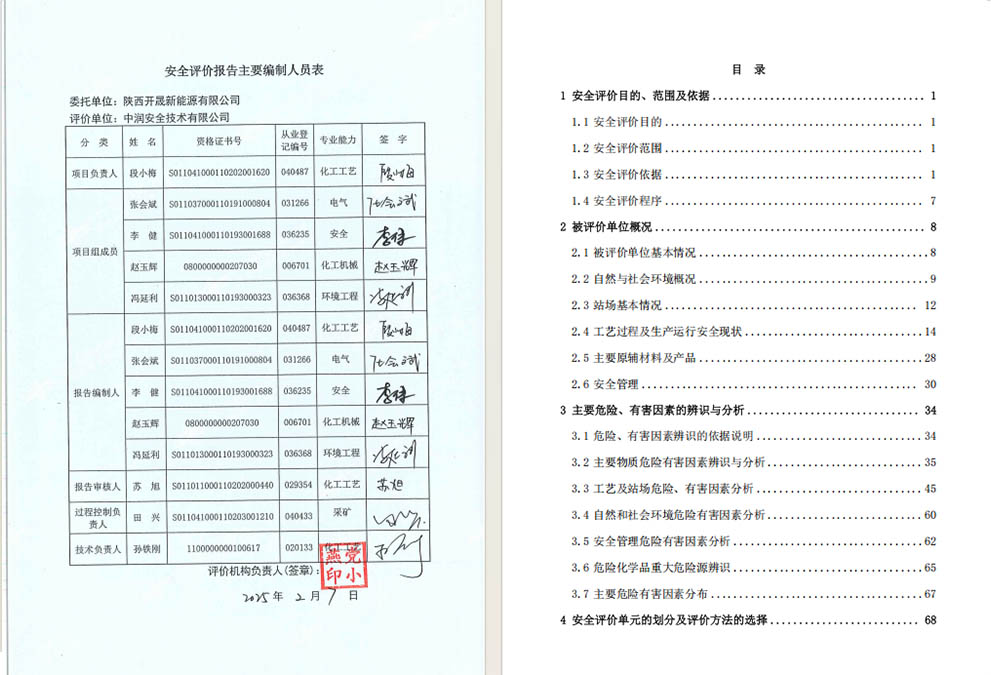 安全评价报告主要编制人员表
委托单位：陕西开晟新能源有限公司
评价单位：中润安全技术有限公司
分 类 姓 名 资格证书号 从业登记编号 专业能力 签 字
项目负责人 段小梅 S011041000110202001620 040487 化工工艺 段小梅
项目组成员 张会斌 S011037000110191000804 031266 电气 张会斌
李 健 S011041000110193001688 036235 安全 李健
赵玉辉 0800000000207030 006701 化工机械 赵玉辉
冯延利 S011013000110193000323 036368 环境工程 冯延利
报告编制人 段小梅 S011041000110202001620 040487 化工工艺 段小梅
张会斌 S011037000110191000804 031266 电气 张会斌
李 健 S011041000110193001688 036235 安全 李健
赵玉辉 0800000000207030 006701 化工机械 赵玉辉
冯延利 S011013000110193000323 036368 环境工程 冯延利
报告审核人 苏 旭 S011011000110202000440 029354 化工工艺 苏旭
过程控制负责人 田 兴 S011041000110203001210 040433 采矿
技术负责人 孙铁刚 1100000000100617 020133 化工工艺
评价机构负责人(签章)：
燕党印小
2025 年 2 月 7 日
目 录
1 安全评价目的、范围及依据 1
1.1 安全评价目的 1
1.2 安全评价范围 1
1.3 安全评价依据 1
1.4 安全评价程序 7
2 被评价单位概况 8
2.1 被评价单位基本情况 8
2.2 自然与社会环境概况 9
2.3 站场基本情况 12
2.4 工艺过程及生产运行安全现状 14
2.5 主要原辅材料及产品 28
2.6 安全管理 30
3 主要危险、有害因素的辨识与分析 34
3.1 危险、有害因素辨识的依据说明 34
3.2 主要物质危险有害因素辨识与分析 35
3.3 工艺及站场危险、有害因素分析 45
3.4 自然和社会环境危险有害因素分析 60
3.5 安全管理危险有害因素分析 62
3.6 危险化学品重大危险源辨识 65
3.7 主要危险有害因素分布 67
4 安全评价单元的划分及评价方法的选择 68